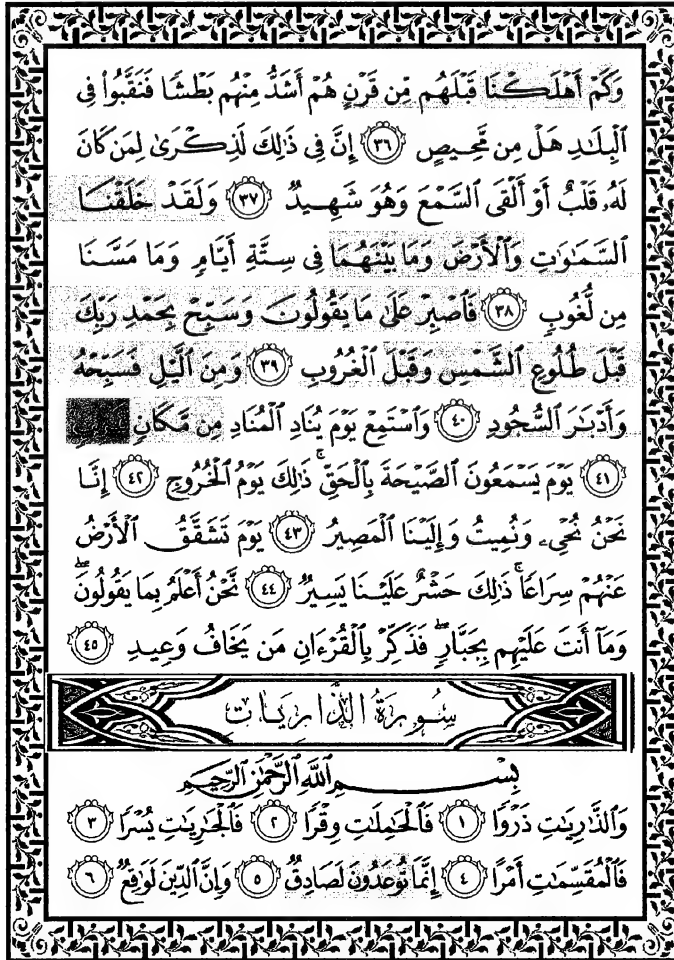 وَكَمْ أَهْلَكْنَا قَبْلَهُم مِّن قَرْنٍ هُمْ أَشَدُّ مِنْهُم بَطْشًا فَنَقَّبُوا۟ فِى
ٱلْبِلَـٰدِ هَلْ مِن مَّحِيصٍ ﴿٣٦﴾ إِنَّ فِى ذَٰلِكَ لَذِكْرَىٰ لِمَن كَانَ
لَهُۥ قَلْبٌ أَوْ أَلْقَى ٱلسَّمْعَ وَهُوَ شَهِيدٌ ﴿٣٧﴾ وَلَقَدْ خَلَقْنَا
ٱلسَّمَـٰوَٰتِ وَٱلْأَرْضَ وَمَا بَيْنَهُمَا فِى سِتَّةِ أَيَّامٍ وَمَا مَسَّنَا
مِن لُّغُوبٍ ﴿٣٨﴾ فَٱصْبِرْ عَلَىٰ مَا يَقُولُونَ وَسَبِّحْ بِحَمْدِ رَبِّكَ
قَبْلَ طُلُوعِ ٱلشَّمْسِ وَقَبْلَ ٱلْغُرُوبِ ﴿٣٩﴾ وَمِنَ ٱلَّيْلِ فَسَبِّحْهُ
وَأَدْبَـٰرَ ٱلسُّجُودِ ﴿٤٠﴾ وَٱسْتَمِعْ يَوْمَ يُنَادِ ٱلْمُنَادِ مِن مَّكَانٍ
﴿٤١﴾ يَوْمَ يَسْمَعُونَ ٱلصَّيْحَةَ بِٱلْحَقِّ ۚ ذَٰلِكَ يَوْمُ ٱلْخُرُوجِ ﴿٤٢﴾ إِنَّا
نَحْنُ نُحْىِۦ وَنُمِيتُ وَإِلَيْنَا ٱلْمَصِيرُ ﴿٤٣﴾ يَوْمَ تَشَقَّقُ ٱلْأَرْضُ
عَنْهُمْ سِرَاعًا ۚ ذَٰلِكَ حَشْرٌ عَلَيْنَا يَسِيرٌ ﴿٤٤﴾ نَّحْنُ أَعْلَمُ بِمَا يَقُولُونَ ۖ
وَمَآ أَنتَ عَلَيْهِم بِجَبَّارٍ ۖ فَذَكِّرْ بِٱلْقُرْءَانِ مَن يَخَافُ وَعِيدِ ﴿٤٥﴾
سُورَةُ الذَّارِيَاتِ
بِسْمِ ٱللَّهِ ٱلرَّحْمَـٰنِ ٱلرَّحِيمِ
وَٱلذَّٰرِيَـٰتِ ذَرْوًا ﴿١﴾ فَٱلْحَـٰمِلَـٰتِ وِقْرًا ﴿٢﴾ فَٱلْجَـٰرِيَـٰتِ يُسْرًا ﴿٣﴾
فَٱلْمُقَسِّمَـٰتِ أَمْرًا ﴿٤﴾ إِنَّمَا تُوعَدُونَ لَصَادِقٌ ﴿٥﴾ وَإِنَّ ٱلدِّينَ لَوَٰقِعٌ ﴿٦﴾